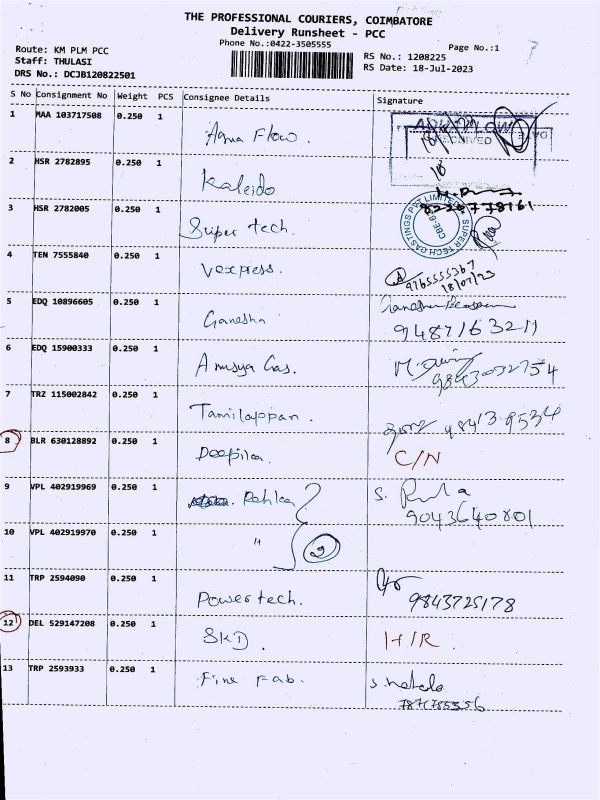 THE PROFESSIONAL COURIERS, COIMBATORE
Delivery Runsheet - PCC
Phone No.:0422-3505555
Page No.:1
Route: KM PLM PCC
Staff: THULASI
DRS No.: DCJB120822501
RS No.: 1208225
RS Date: 18-Jul-2023
S No Consignment No Weight PCS Consignee Details Signature
1 MAA 103717508 0.250 1
Aqua Flow.
2 HSR 2782895 0.250 1
Kaleido
3 HSR 2782005 0.250 1
Super tech.
SUPER TECH CASTINGS PVT LIMITED
4 TEN 7555840 0.250 1
Vexpress.
9765555367
18/07/23
5 EDQ 10896605 0.250 1
Ganesha
9487163211
6 EDQ 15900333 0.250 1
Anusya Gas.
9843032754
7 TRZ 115002842 0.250 1
Tamilappan.
8 BLR 630128892 0.250 1
Deepika.
C/N
9 VPL 402919969 0.250 1
9043640801
10 VPL 402919970 0.250 1
"
2
11 TRP 2594090 0.250 1
Powertech.
9843725178
12 DEL 529147208 0.250 1
SKD.
H/R.
13 TRP 2593933 0.250 1
Fine Fab.